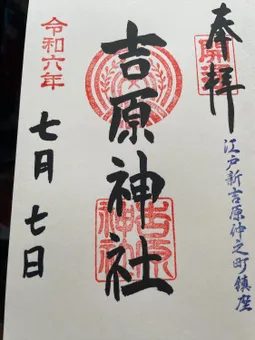 奉拝
江戸新吉原仲之町鎮座
吉原神社
吉原神社
令和六年
七月七日